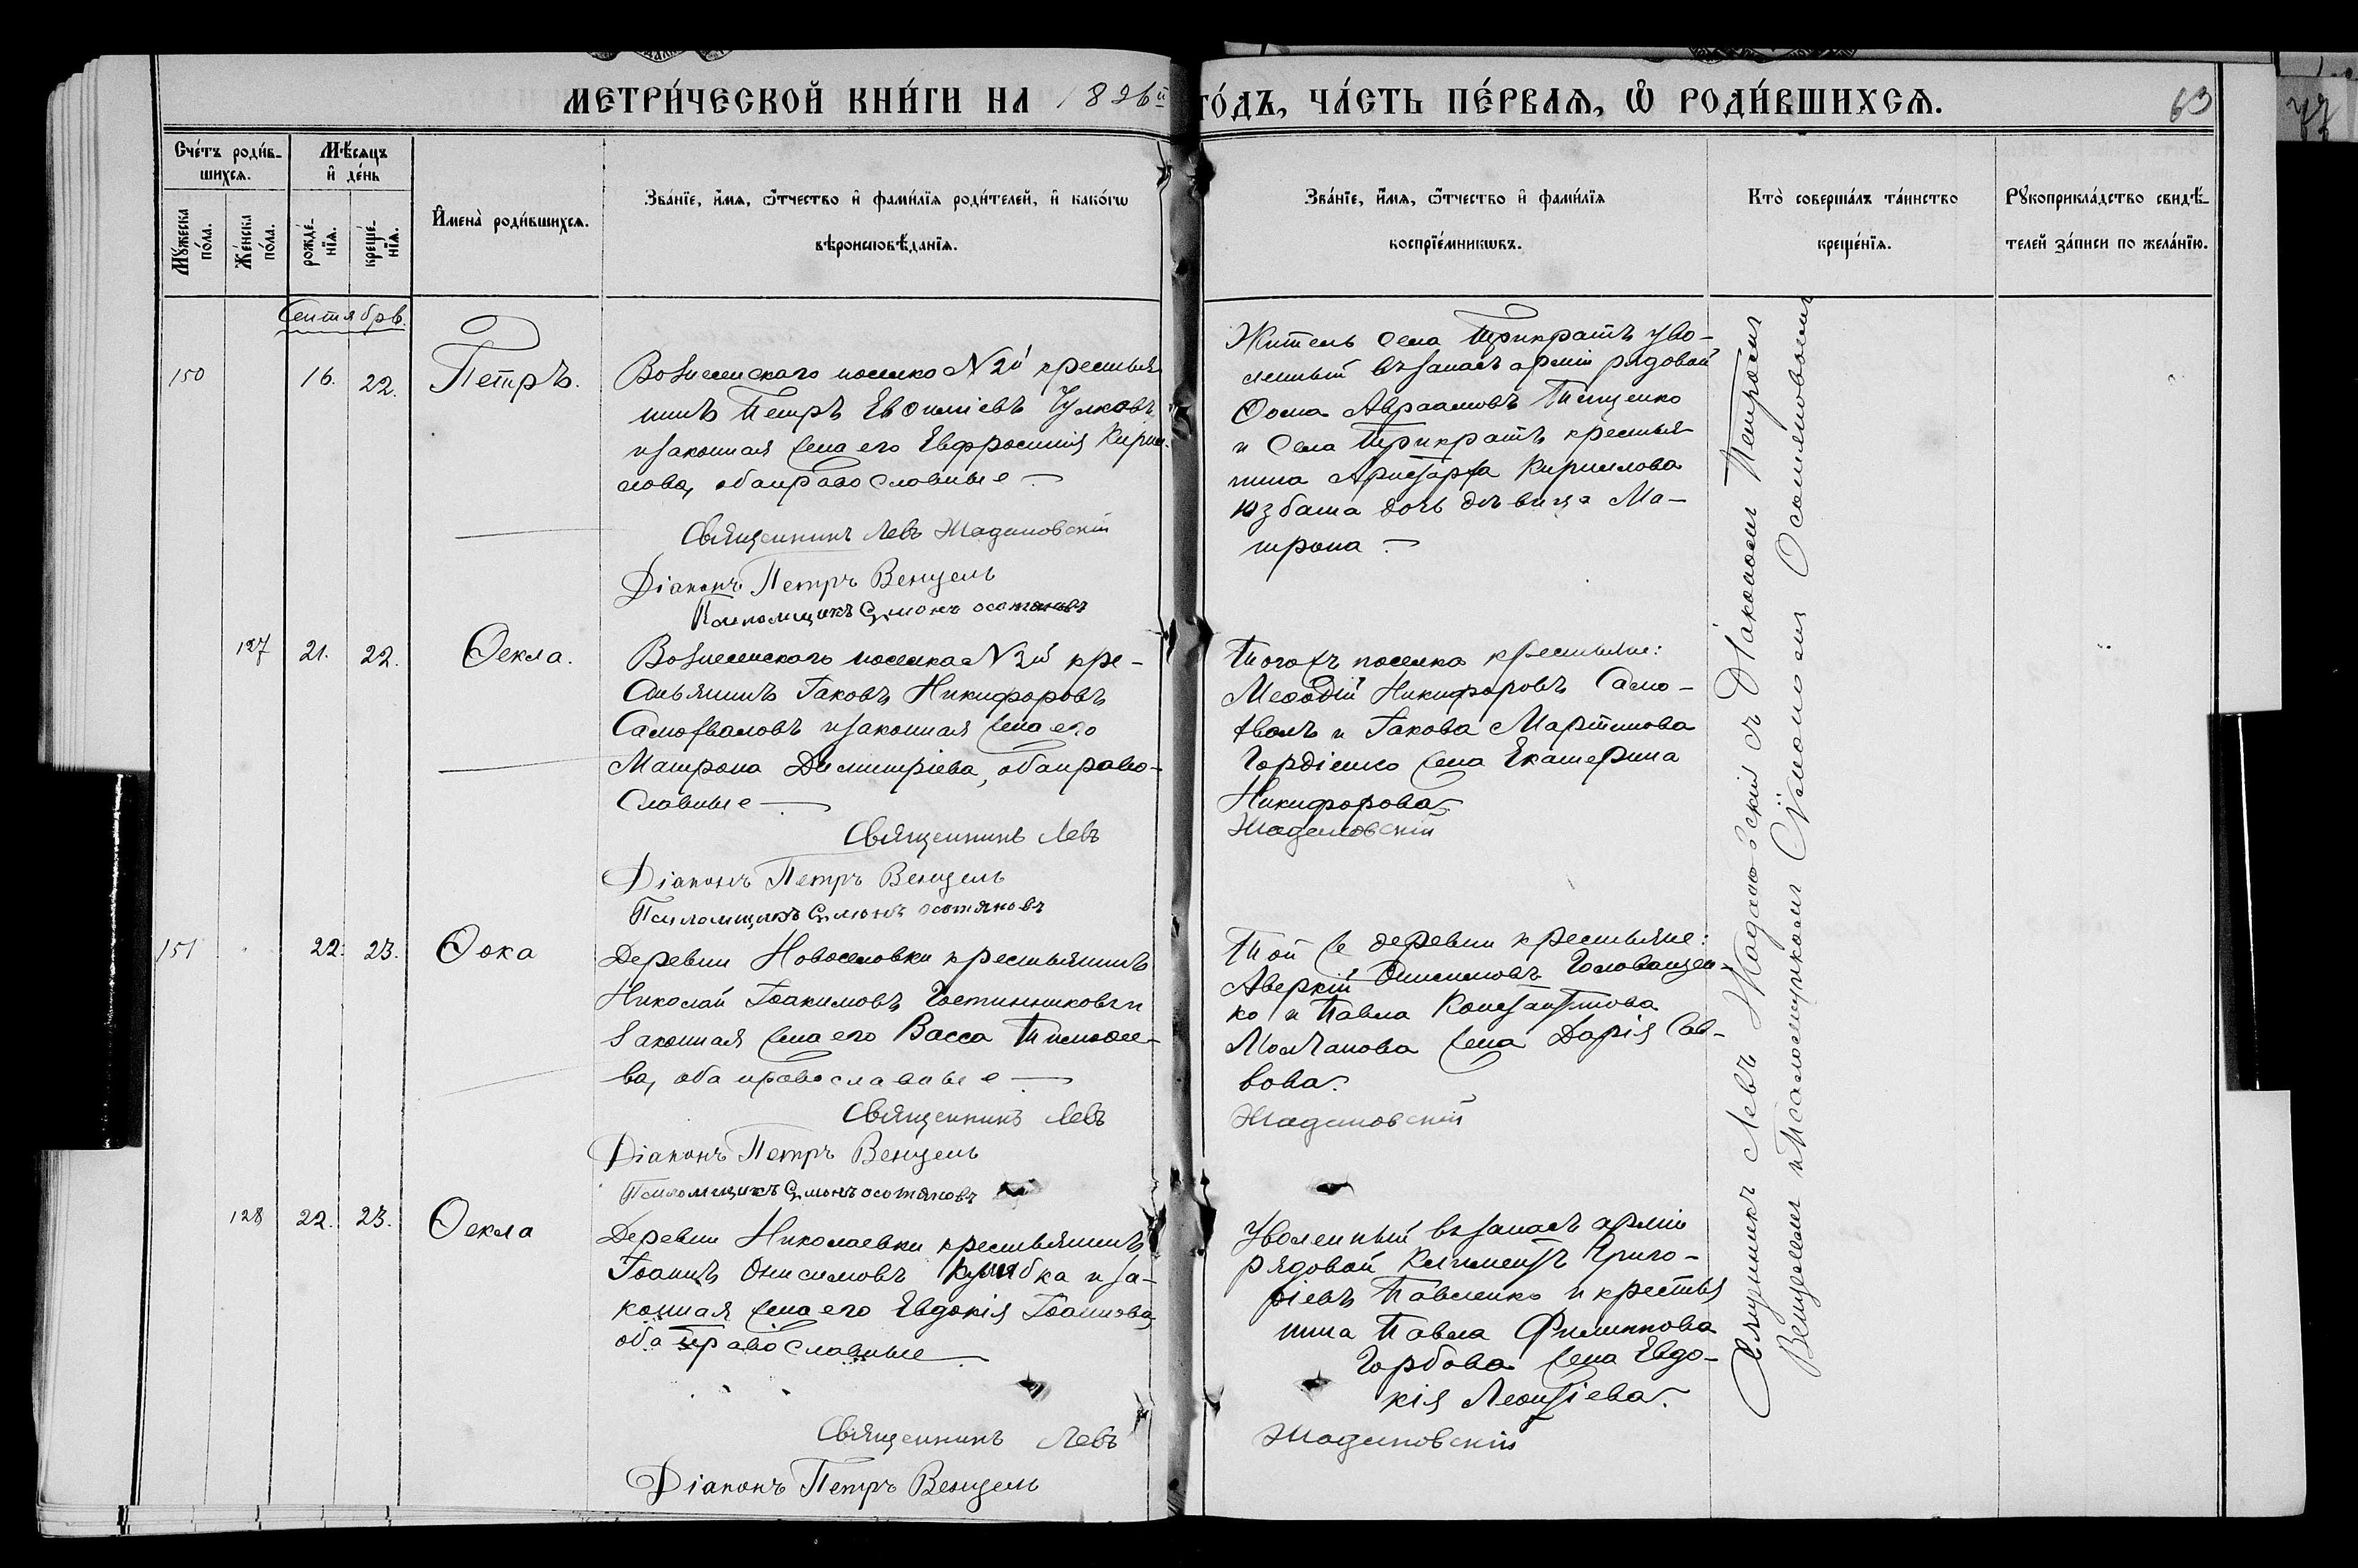 МЕТРИ́ЧЕСКОЙ КНИ́ГИ НА 1896й
ГО́ДЪ, ЧА́СТЬ ПЕ́РВАЯ, Ѡ҆ РОДИ́ВШИХСЯ.
63
Сче́тъ роди́в-
шихся.
Мѣ́сяцъ
и҆ де́нь
Мꙋ́жеска
по́ла.
Же́нска
по́ла.
рожде́-
нїя.
креще́-
нїя.
И҆мена̀ роди́вшихся.
Зва́нїе, и҆́мя, ѻ҆́тчество и҆ фами́лїя роди́телей, и҆ како́гѡ
вѣроисповѣ́данїя.
Зва́нїе, и҆́мя, ѻ҆́тчество и҆ фами́лїя
воспрїе́мникѡвъ.
Кто̀ соверша́лъ та́инство
креще́нїя.
Рꙋкоприкла́дство свидѣ́-
телей за́писи по жела́нїю.
Сентябрь.
150
16.
22.
Петръ.
Вознесенскаго поселка №2й крестья
нинъ Петръ Евѳиміевъ Чулковъ
и законная жена его Евфросинія Кирил-
лова, оба православные —
Священникъ Левъ Шадановскій
Діаконъ Петръ Венцель
Псаломщикъ Симонъ Осотяновъ
Житель села Трикратъ уво-
ленный въ запасъ арміи рядовой
Ѳома Авраамовъ Тищенко
и села Трикратъ крестья
нина Аристарха Кириллова
Юзбаша дочь дѣвица Ма-
трона —
127
21.
22.
Ѳекла.
Вознесенскаго поселка №2й кре-
стьянинъ Іаковъ Никифоровъ
Самохваловъ и законная жена его
Матрона Димитріева, оба право-
славные —
Священникъ Левъ
Діаконъ Петръ Венцель
Псаломщикъ Симонъ Осотяновъ
Того жъ поселка крестьяне:
Меѳодій Никифоровъ Само-
хвалъ и Іакова Мартинова
Гордіенко жена Екатерина
Никифорова.
Шадановскій
151
22.
23.
Ѳока
Деревни Новоселовки крестьянинъ
Николай Іоакимовъ Гостинниковъ и
законная жена его Васса Тимоѳее-
ва, оба православные —
Священникъ Левъ
Діаконъ Петръ Венцель
Псаломщикъ Симонъ Осотяновъ
Той же деревни крестьяне:
Аверкій Онисимовъ Голованцен-
ко и Павла Константинова
Молчанова жена Дарія Сав-
вова.
Шадановскій
128
22.
23.
Ѳекла
Деревни Николаевки крестьянинъ
Іоаннъ Онисимовъ и за-
конная жена его Евдокія Іоаннова,
оба православные —
Священникъ Левъ
Діаконъ Петръ Венцель
Уволенный въ запасъ арміи
рядовой Климентъ Григо-
ріевъ Павленко и крестья
нина Павла Филиппова
Горбова жена Евдо-
кія Леонтіева.
Шадановскій
Священникъ Левъ Шадановскій съ Діакономъ Петромъ
Венцелемъ и Псаломщикомъ Симономъ Осотяновымъ